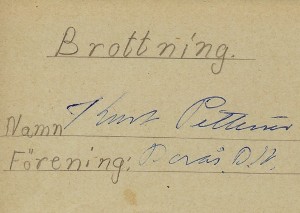 Brottning.
Namn Kurt Pettersén
Förening: Borås B.K.